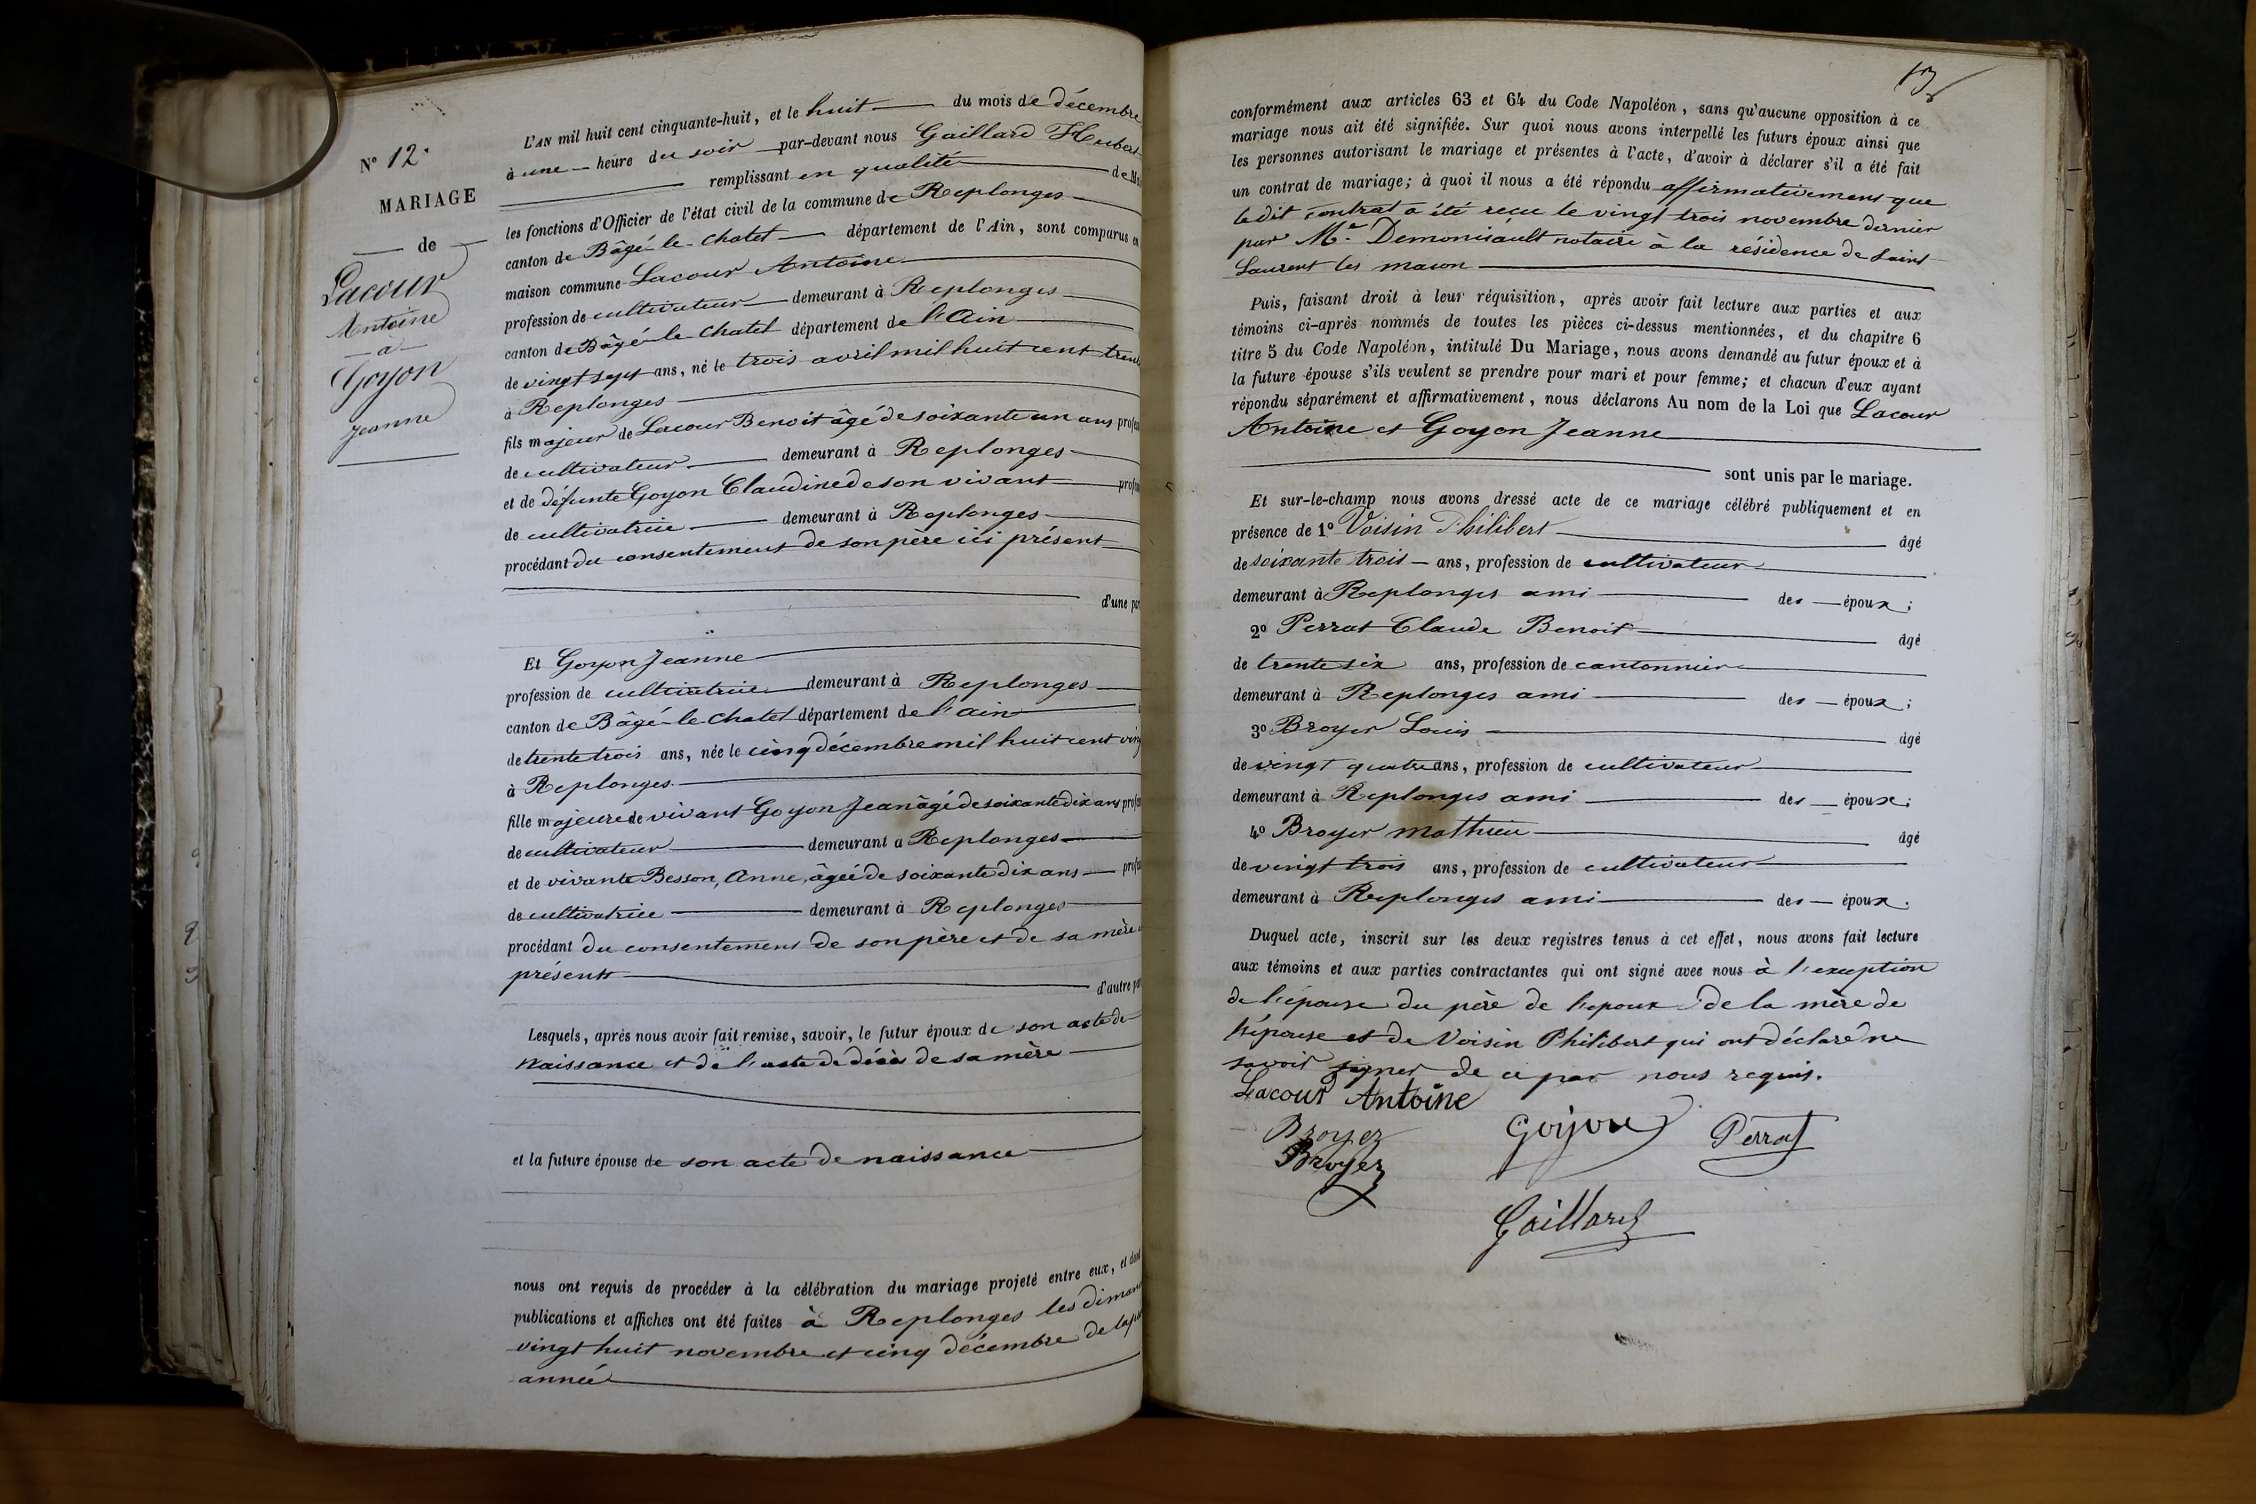 N° 12.
MARIAGE
de
Lacour
Antoine
a
Goyon
Jeanne
L'AN mil huit cent cinquante-huit, et le huit du mois de décembre
à une heure du soir par-devant nous Gaillard Hubert
remplissant en qualité de
les fonctions d'Officier de l'état civil de la commune de Replonges
canton de Bâgé-le-Chatel département de l'Ain, sont comparus en
maison commune Lacour Antoine
profession de cultivateur demeurant à Replonges
canton de Bâgé-le-Chatel département de l'Ain
de vingt sept ans, né le trois avril mil huit cent
à Replonges
fils majeur de Lacour Benoit âgé de soixante un ans
de cultivateur demeurant à Replonges
et de défunte Goyon Claudine de son vivant
de cultivatrice demeurant à Replonges
procédant du consentement de son père ici présent
d'une
Et Goyon Jeanne
profession de cultivatrice demeurant à Replonges
canton de Bâgé-le-Chatel département de l'ain
de trente trois ans, née le cinq décembre mil huit cent
à Replonges
fille majeure de vivant Goyon Jean âgé de soixante dix ans
de cultivateur demeurant à Replonges
et de vivante Besson, Anne, âgée de soixante dix ans
de cultivatrice demeurant à Replonges
procédant du consentement de son père et de sa mère
présents
d'autre
Lesquels, après nous avoir fait remise, savoir, le futur époux de son acte de
naissance et de l'acte de décès de sa mère
et la future épouse de son acte de naissance
nous ont requis de procéder à la célébration du mariage projeté entre eux, et dont
publications et affiches ont été faites à Replonges les
vingt huit novembre et cinq décembre de
année
13
conformément aux articles 63 et 64 du Code Napoléon, sans qu'aucune opposition à ce
mariage nous ait été signifiée. Sur quoi nous avons interpellé les futurs époux ainsi que
les personnes autorisant le mariage et présentes à l'acte, d'avoir à déclarer s'il a été fait
un contrat de mariage; à quoi il nous a été répondu affirmativement que
le dit contrat a été reçu le vingt trois novembre dernier
par Me Demoniault notaire à la résidence de Saint
Laurent les macon
Puis, faisant droit à leur réquisition, après avoir fait lecture aux parties et aux
témoins ci-après nommés de toutes les pièces ci-dessus mentionnées, et du chapitre 6
titre 5 du Code Napoléon, intitulé Du Mariage, nous avons demandé au futur époux et à
la future épouse s'ils veulent se prendre pour mari et pour femme; et chacun d'eux ayant
répondu séparément et affirmativement, nous déclarons Au nom de la Loi que Lacour
Antoine et Goyon Jeanne
sont unis par le mariage.
Et sur-le-champ nous avons dressé acte de ce mariage célébré publiquement et en
présence de 1° Voisin Philibert âgé
de soixante trois ans, profession de cultivateur
demeurant à Replonges ami des époux;
2° Perrat Claude Benoit âgé
de trente six ans, profession de cantonnier
demeurant à Replonges ami des époux;
3° Broyer Louis âgé
de vingt quatre ans, profession de cultivateur
demeurant à Replonges ami des époux;
4° Broyer mathieu âgé
de vingt trois ans, profession de cultivateur
demeurant à Replonges ami des époux.
Duquel acte, inscrit sur les deux registres tenus à cet effet, nous avons fait lecture
aux témoins et aux parties contractantes qui ont signé avec nous à l'exception
de l'épouse du père de l'epoux de la mère de
l'épouse et de Voisin Philibert qui ont déclaré ne
savoir signer de ce par nous requis.
Lacour Antoine
Broyer Goyon Perrat
Broyer
Gaillard